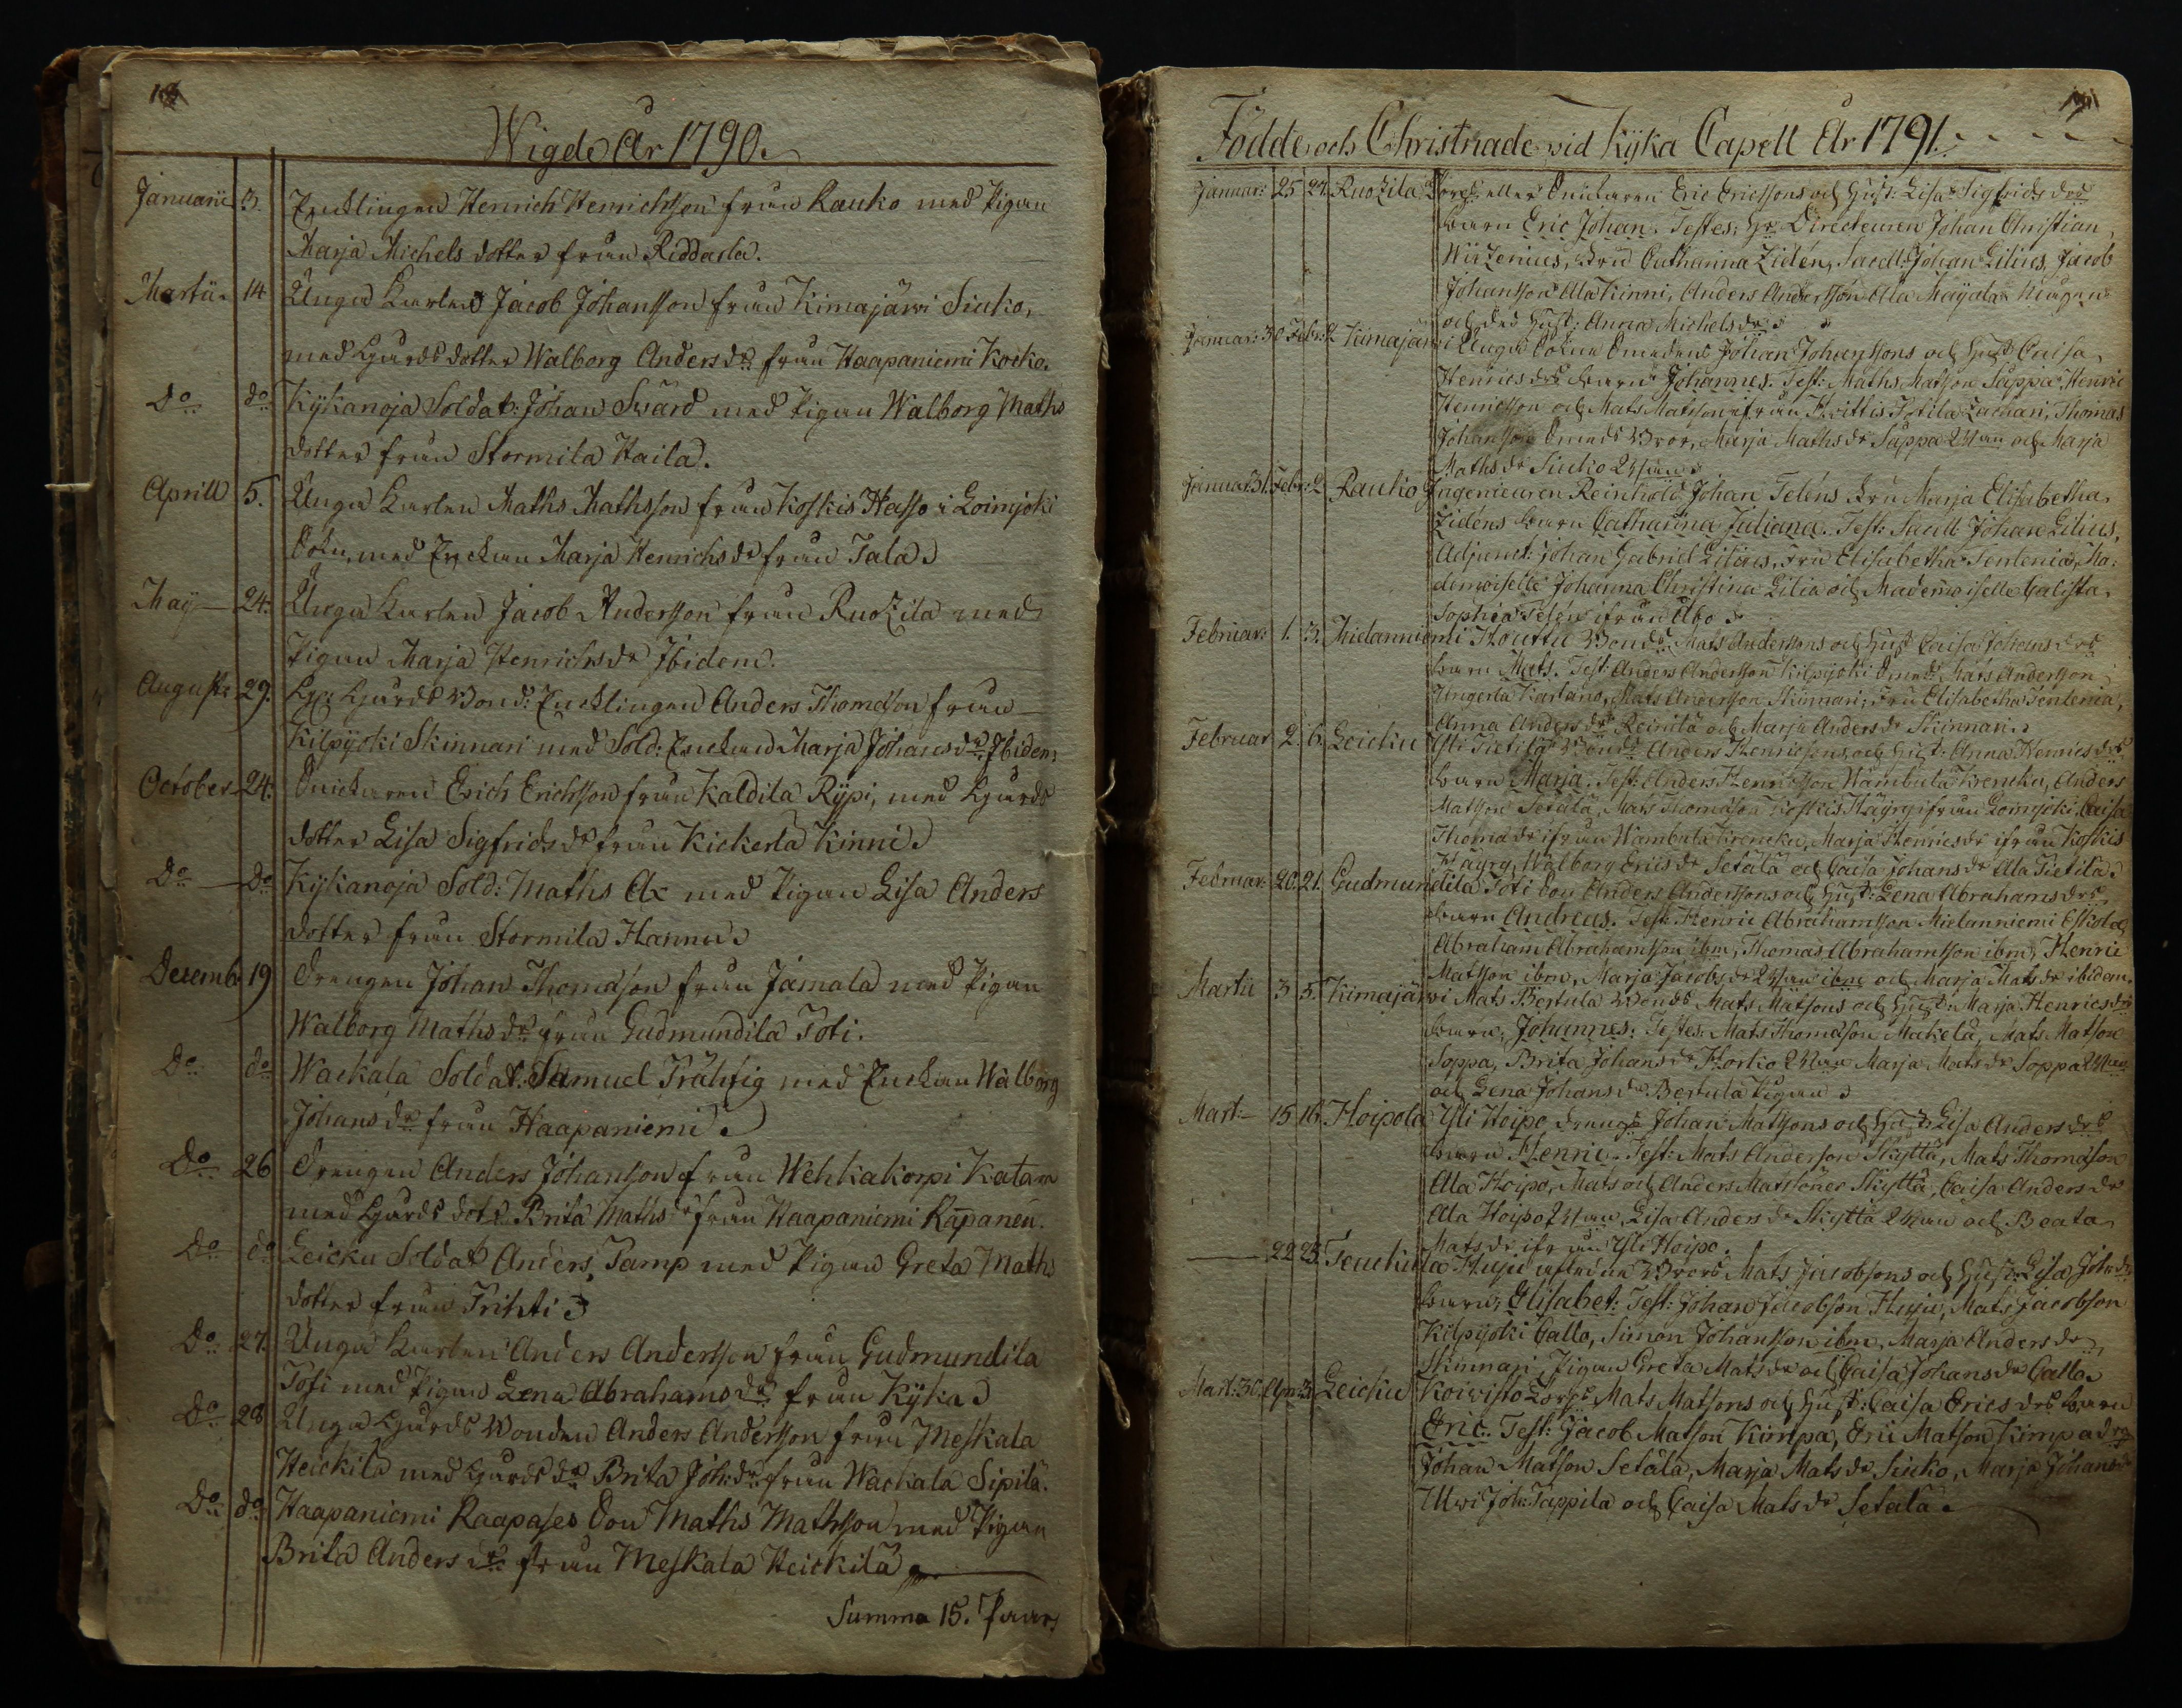 Wigde År 1790.
Januarii 3. Enklingen Henrich Henrichsson från Rauko med Pigan
Marja Michels dotter från Riddarla.
Martii 14 Unga Karlen Jacob Johansson från Kimajärvi Siuko,
med Gårds dotter Walborg Anders dr från Haapaniemi Kocko.
Do do Kykanoja Soldat: Johan Svärd med Pigan Walborg Maths
dotter från Stormila Haila.
Aprill 5. Unga Karlen Maths Mathsson från Koskis Hasso i Loimjoki
Sokn, med Enckan Marja Henrichs dr från Tala.
Maij 24. Unga Karlen Jacob Andersson från Ruozila med
Pigan Marja Henrichs dr Ibidem.
Augusti 29. Gårds Bond: Encklingen Anders Thomasson från
Kilpijoki Skinnari med Sold: Enckan Marja Johans dr Ibidem
October 24. Snickaren Erich Erichsson från Kaldila Rypi, med Gårds
dotter Lisa Sigfrids dr från Kickerla Kinni.
Do do Kykanoja Sold: Maths Ax med Pigan Lisa Anders
dotter från Stormila Hannu.
Decemb. 19 Drengen Johan Thomasson från Jamala med Pigan
Walborg Maths dr från Gudmundila Toti.
Do do Wackala Soldat. Samuel Trähtig med Enckan Walborg
Johans dr från Haapaniemi.
Do 26 Drengen Anders Johansson från Wehkakorpi Katan
med Gårds dotr Brita Maths dr från Haapaniemi Rapanen.
Do do Leicku Soldat Anders Tamp med Pigan Greta Maths
dotter från Trihti
Do 27. Unga Karlen Anders Andersson från Gudmundila
Toti med Pigan Lena Abrahams dr från Kyka.
Do 28 Unga Gårds Bonden Anders Andersson från Meskala
Heickilä med Gårds dr Brita Joh: dr från Wackala Sipilä.
Do do Haapaniemi Raapases Son Maths Mathsson med Pigan
Brita Anders dr från Meskala Heickilä
Summa 15. Paar
Födde och Christnade vid Kyka Capell År 1791.
Januar: 25 27. Ruozila eller Snickaren Eric Ericssons och Hust: Lisa Sigfrids drs
barn Eric Johan. Testes: Hr Directeuren Johan Christian
Wirzenius, Fru Catharina Zidén, Sacell: Johan Lilius, Jacob
Johansson Ala Kinni, Anders Andersson Ala Maijala Drengen
och des Hust: Anna Michels dr
Januar: 30 Febr: 2 Kimajärvi Unga Sokne Smedens Johan Johanssons och Hust Caisa
Henrics drs barn Johannes. Test: Maths Matsson Sappa, Henric
Henricsson och Mats Matsson ifrån Hvittis Sotila Zachari, Thomas
Johansson Smeds Bror, Marja Maths dr Sappa och Marja
Maths dr Siuko
Januar 31. Febr: 2 Rauko Ingenieuren Reinhold Johan Teléns Fru Marja Elisabetha
Zidéns barn Catharina Juliana. Test: Sacell Johan Lilius,
Adjunct: Johan Gabriel Lilius, Fru Elisabetha Tentenia, Ma-
demoiselle Johanna Christina Lilia och Mademoiselle Calista
Sophia Telén ifrån Åbo
Februar: 1. 3. Mielanniemi Houttu Bonds Mats Anderssons och Hust Caisa Johans drs
barn Mats. Test: Anders Andersson Kilpijoki Smed Mats Andersson
Ungerla Kartano, Mats Andersson Skinnari, Fru Elisabetha Tentenia,
Anna Anders dr Reinilä och Marja Anders dr Skinnari.
Februar 2. 6. Leicku Yli Tietilä Bonds Anders Henricssons och Hust: Anna Henrics drs
barn Marja. Test: Anders Henricsson Wambula Krencku, Anders
Matsson Setälä, Mats Thomasson Koskis Häyry ifrån Loimjoki, Caisa
Thomas dr ifrån Wambula Krencku, Marja Henrics dr ifrån Koskis
Häyry, Walborg Erics dr Setälä och Caisa Johans dr Ala Tietilä.
Februar. 20. 21. Gudmundila Toti Son Anders Anderssons och Hust: Lena Abrahams drs
barn Andreas. Test: Henric Abrahamsson Mielanniemi Eskola,
Abraham Abrahamsson ibm, Thomas Abrahamsson ibm, Henric
Matsson ibm, Marja Jacobs dr ibm och Marja Mats dr ibidem.
Martii 3 5. Kimajärvi Mats Bertula Bonds Mats Matsons och Hust: Marja Henrics drs
barn, Johannes. Testes: Mats Thomasson Makelä, Mats Matson
Soppa, Brita Johans dr Horko Marja Mats dr Soppa
och Lena Johans dr Bertula Pigan
Mart: 15 16. Hoipola Yli Hoipo Drengs Johan Matssons och Hust: Lisa Anders drs
barn Henric. Test: Mats Anderson Skyttä, Mats Thomasson
Ala Hoipo, Mats och Anders Matssöner Skyttä, Caisa Anders dr
Ala Hoipo, Lisa Anders dr Skyttä och Beata
Mats dr ifrån Yli Hoipo.
22 23. Teuckula Huju aflidne Brors Mats Jacobsons och Hust: Lisa Joh: drs
barn, Elisabet: Test: Johan Jacobson Huju, Mats Jacobson
Kilpijoki Callo, Simon Johansson ibm, Marja Anders dr
Skinnari, Pigan Greta Mats dr och Caisa Johans dr Callo
Mart: 30. Apr: 3 Leicku Koivisto Torps Mats Matsons och Hust: Caisa Erics drs barn
Eric. Test: Jacob Matson Kimpa, Eric Matson Kimpa
Johan Matson Setälä, Marja Mats dr Siuko, Marja Johans
Ulvi Joh: Tappila och Caisa Mats dr Setälä.